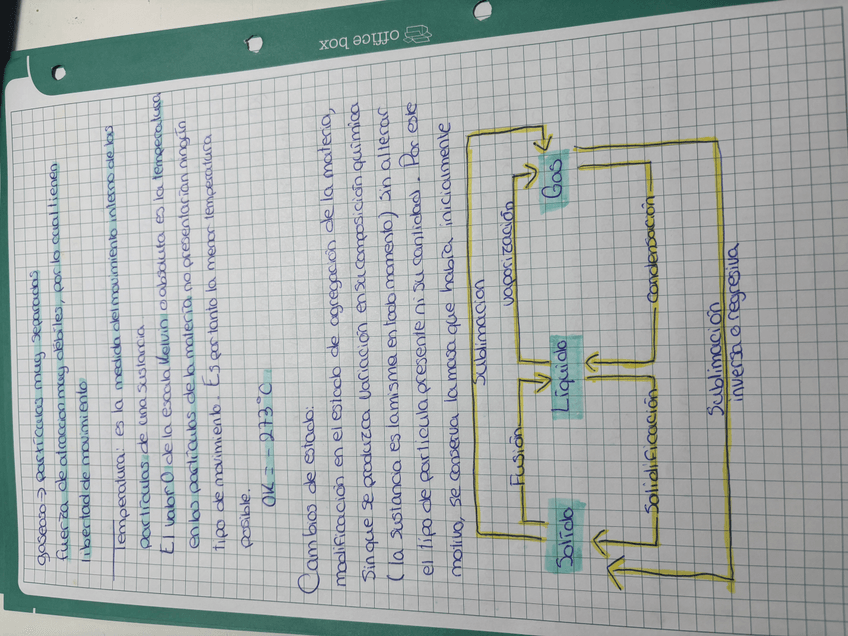 office box
gaseoso → partículas muy separadas
fuerza de atracción muy débiles, por lo cual tienen
libertad de movimiento
Temperatura: es la medida del movimiento interno de las
partículas de una sustancia
El valor 0 de la escala Kelvin o absoluta es la temperatura
en las partículas de la materia no presentarían ningún
tipo de movimiento. Es por tanto la menor temperatura
posible.
0K = -273°C
Cambios de estado:
modificación en el estado de agregación de la materia,
sin que se produzca variación en su composición química
(la sustancia es la misma en todo momento) sin alterar
el tipo de partícula presente ni su cantidad. Por este
motivo, se conserva la masa que había inicialmente
Sublimación
Fusión
vaporización
Sólido
Líquido
Gas
Solidificación
Condensación
Sublimación
inversa o regresiva